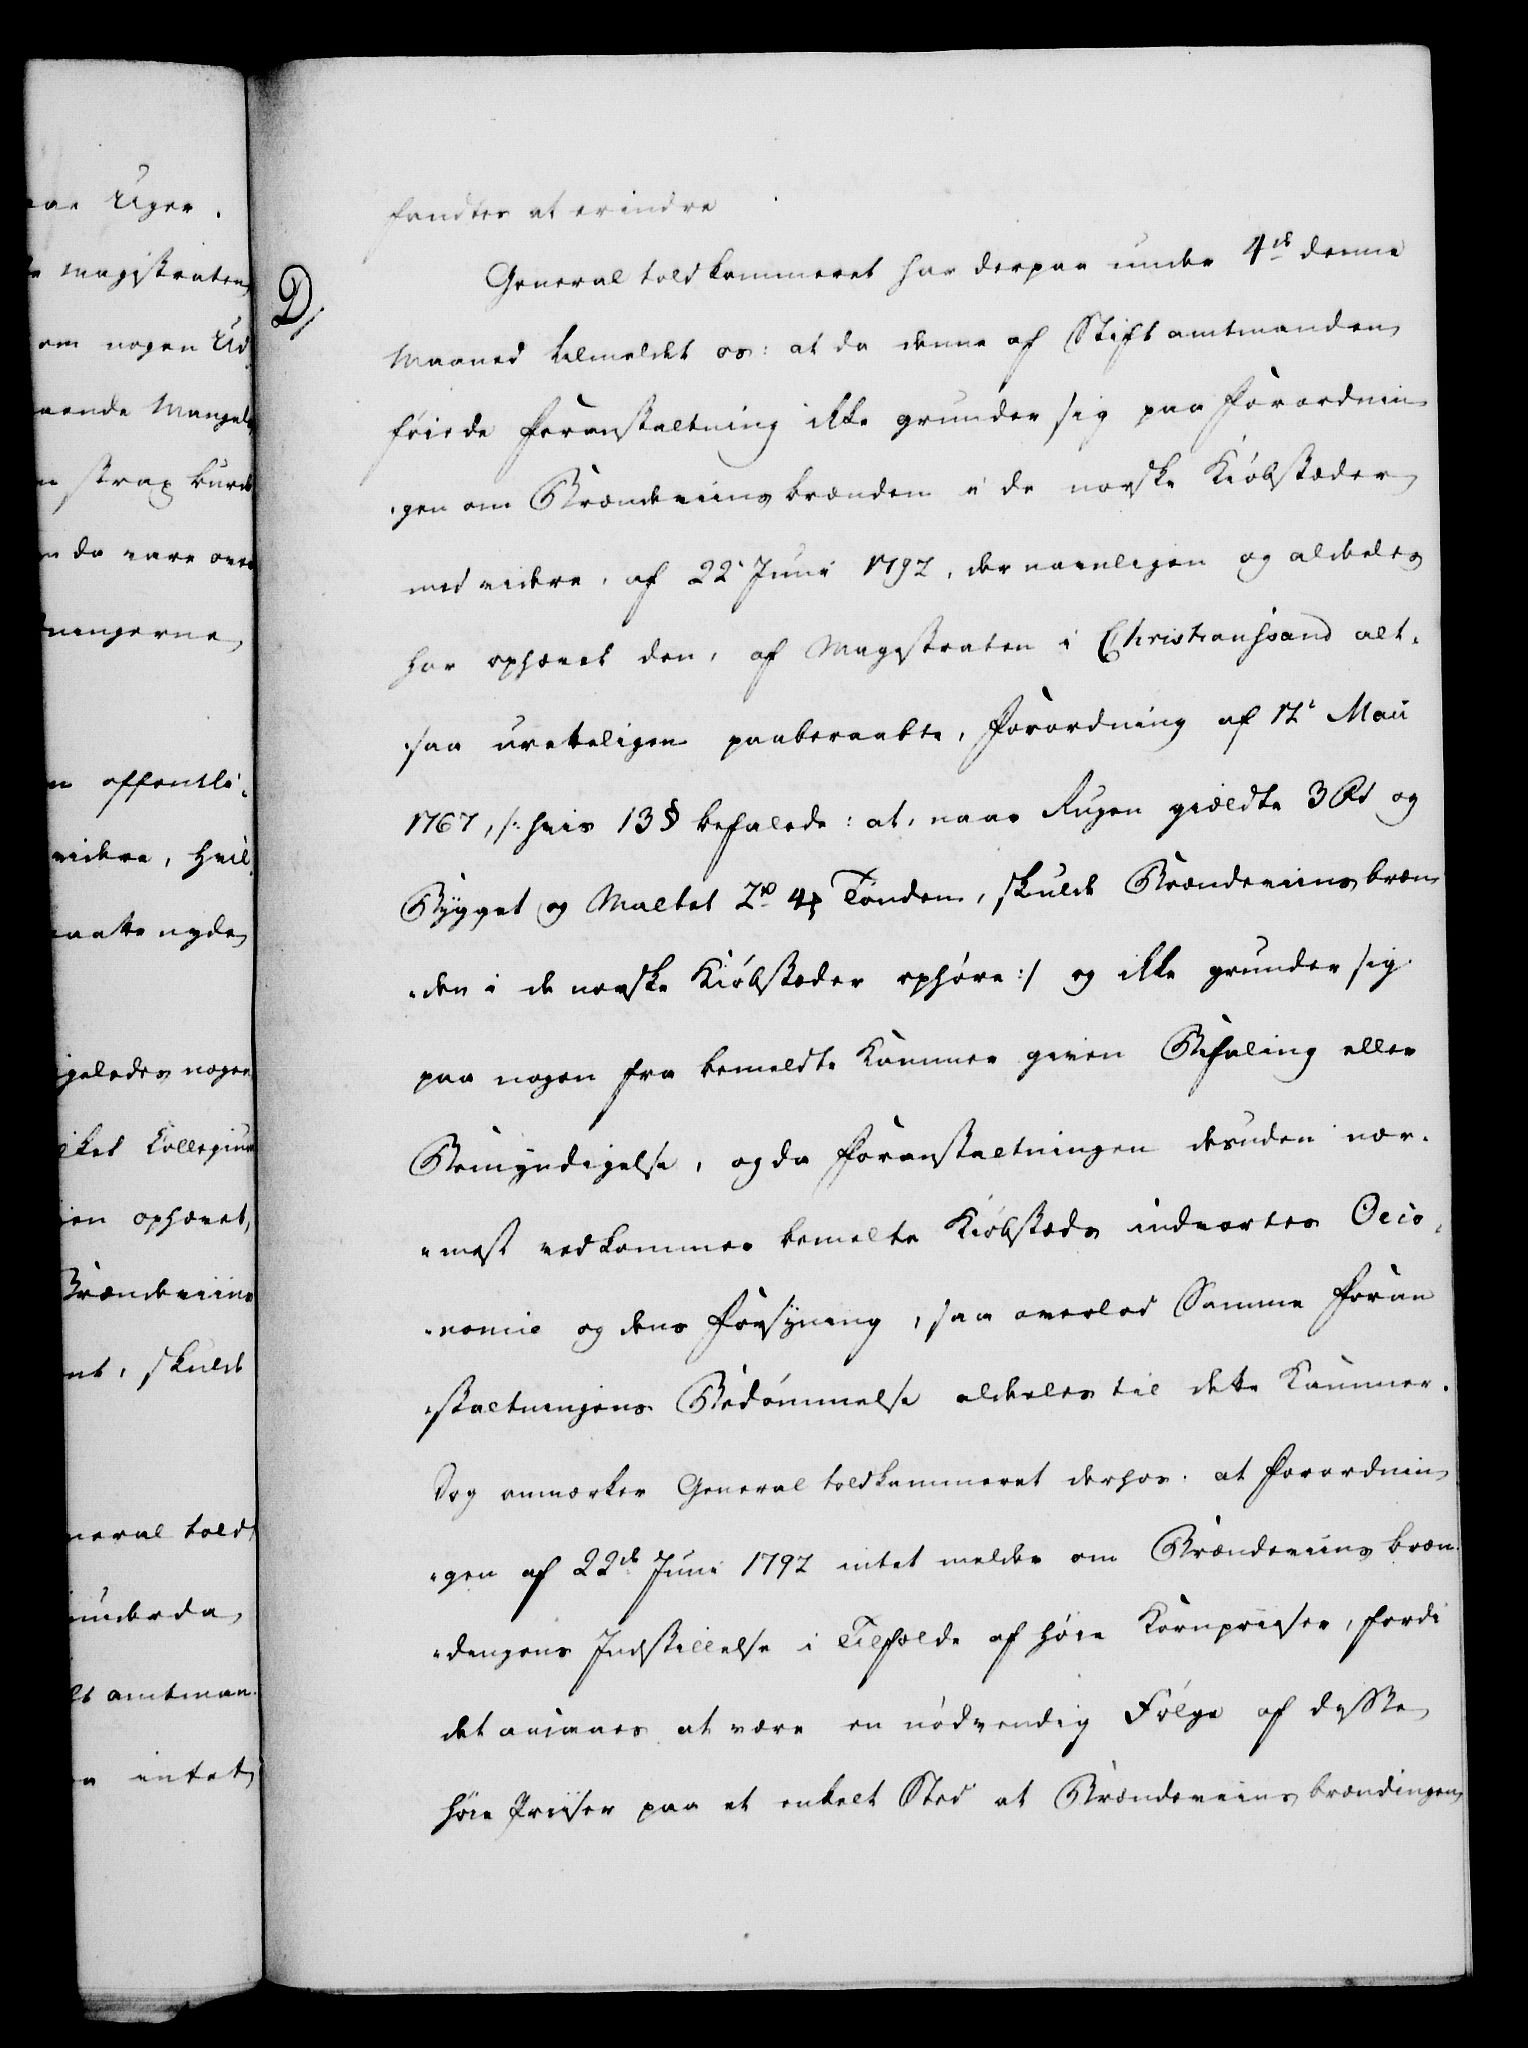 aar Uger.
magistraten
om nogen Ud
aaende Mangel
strax burde
da vare over
ningerne
offentli-
videre, hvil
maatte nyde
geledes nogen
ket Collegium
en ophævet,
Brændeviins
nt, skulde
neral told
underda
ft amtman-
intet
fandtes at erindre
D,
General toldkammeret har derpaa under 4de denne
Maaned tilmeldet os: at da denne af Stiftamtmanden
føiede Foranstaltning ikke grunder sig paa Forordnin
-gen om Brændeviinsbrænden i de norske Kiøbstæder
med videre, af 22 Junii 1792, der navnligen og aldeles
har ophævet den, af Magistraten i Christianssand alt-
saa uretteligen paaberaabte, Forordning af 12 Maii
1767, /: hvis 13 § befalede: at, naar Rugen gieldte 3 Rd og
Bygget og Maltet 2 Rd 4 ß Tønden, skulde Brændeviinsbræn
-den i de norske Kiøbstæder ophøre :/ og ikke grunder sig
paa nogen fra bemeldte Kammer given Befaling eller
Bemyndigelse, og da Foranstaltningen desuden nær-
-mest vedkommer bemelte Kiøbstæds indvortes Oeco-
-nomie og dens Forsyning, saa overlod Samme Foran
-staltningens Bedømmelse aldeles til dette Kammer.
Dog anmærker General toldkammeret derhos. at Forordnin
-gen af 22de Juni 1792 intet melder om Brændeviinsbræn-
-dingens Indstillelse i Tilfælde af høie Kornpriser, fordi
det ansaaes at være en nødvendig Følge af disse
høie Priiser paa et enkelt Sted at Brændeviinsbrændingen